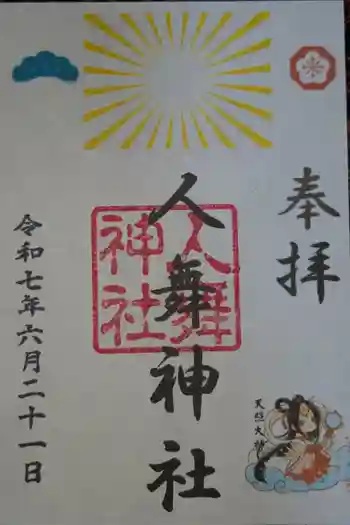 奉拝
人舞神社
人舞神社
天照大神
令和七年六月二十一日